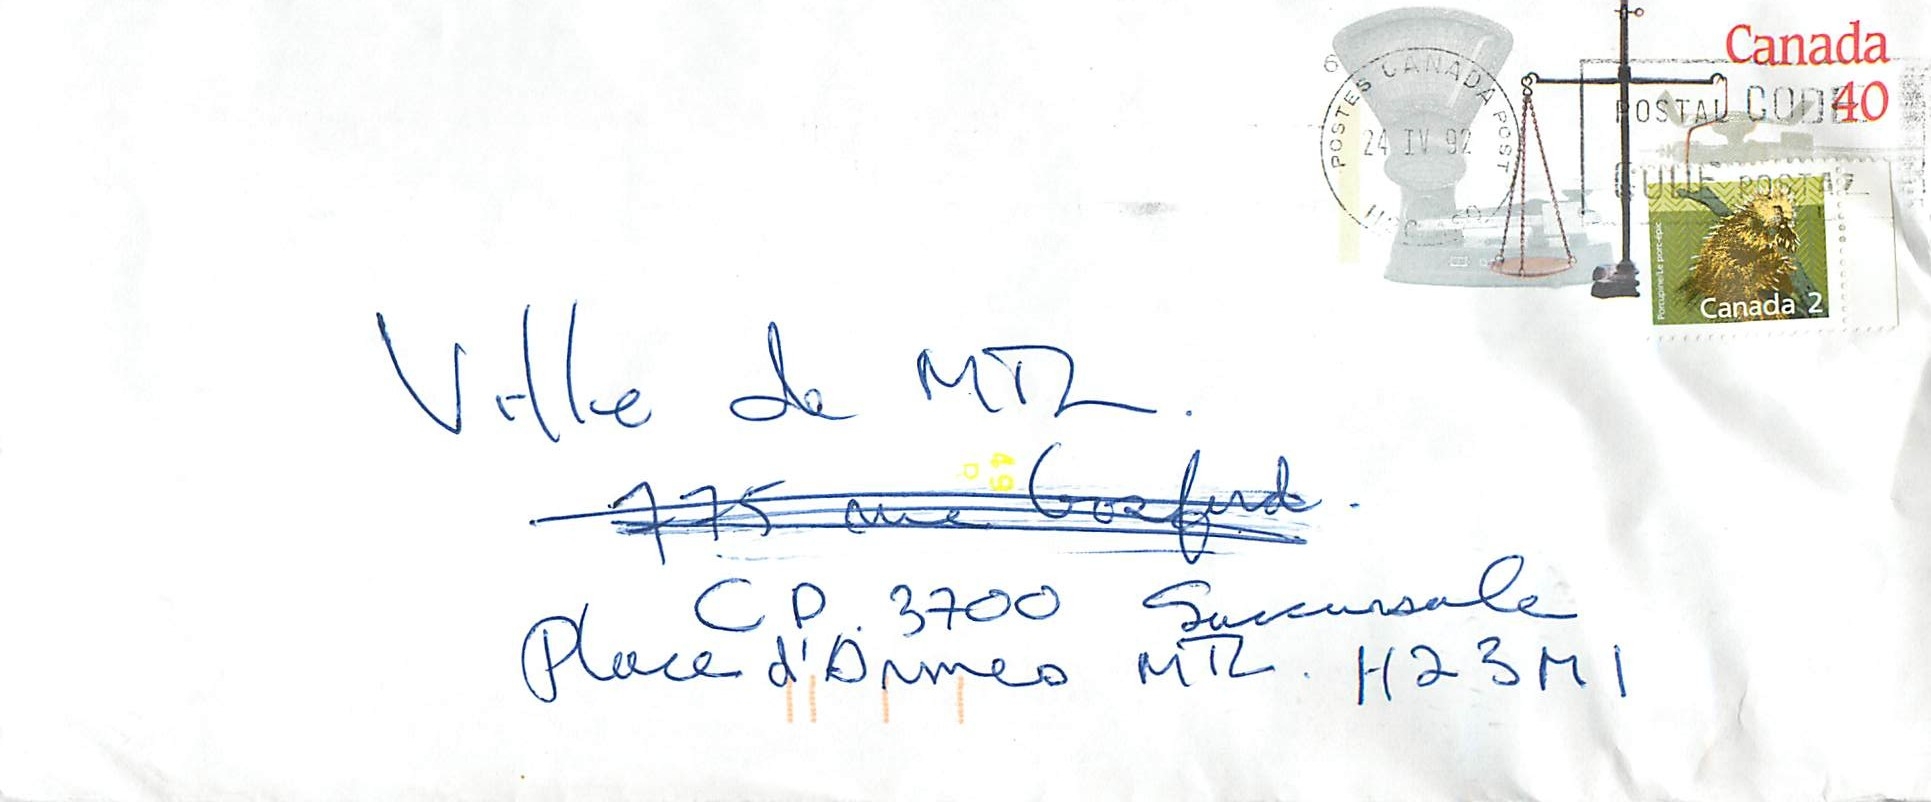 Canada
40
6
POSTES CANADA POST
24 IV 92
POSTAL CODE
CODE POSTAL
Porcupine/Le porc-épic
Canada 2
Ville de MTL.
49
775 rue Gosford.
C.P. 3700 Succursale
Place d'Armes MTL. H23M1